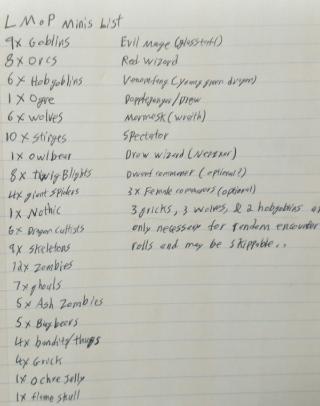 LMoP Minis List
9x Goblins
8x Orcs
6x Hobgoblins
1x Ogre
6x wolves
10x Stirges
1x owlbear
8x Twig Blights
4x giant Spiders
1x Nothic
6x Dragon Cultists
9x Skeletons
12x Zombies
7x ghouls
5x Ash Zombies
5x Bugbears
4x bandits/thugs
4x Grick
1x Ochre Jelly
1x flame skull
Evil Mage (glasstaff)
Red Wizard
Venomfang (young green dragon)
Doppleganger/Drow
Mormesk (wraith)
Spectator
Drow wizard (Nezznar)
Dwarf commoner (optional?)
3x Female commoners (optional)
3 gricks, 3 wolves, & 2 hobgoblins
only necessary for random encounter
rolls and may be skippable..